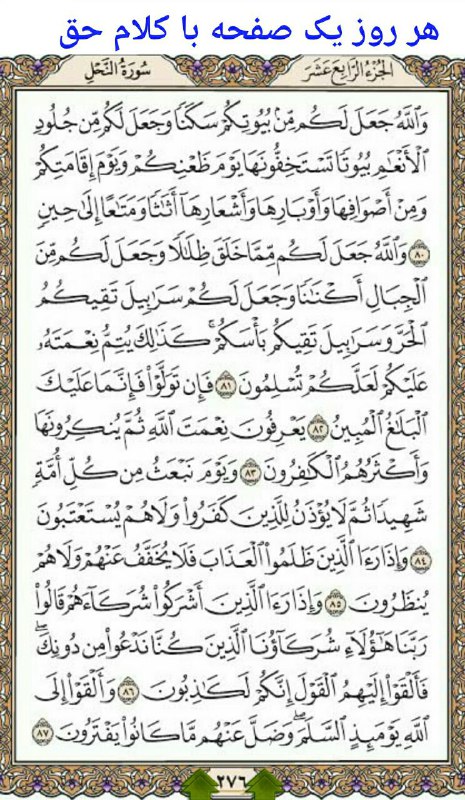 هر روز یک صفحه با کلام حق
الجُزءُ الرَّابِعَ عَشَرَ سُورَةُ النَّحۡلِ
وَٱللَّهُ جَعَلَ لَكُم مِّنۢ بُيُوتِكُمۡ سَكَنٗا وَجَعَلَ لَكُم مِّن جُلُودِ
ٱلۡأَنۡعَٰمِ بُيُوتٗا تَسۡتَخِفُّونَهَا يَوۡمَ ظَعۡنِكُمۡ وَيَوۡمَ إِقَامَتِكُمۡ
وَمِنۡ أَصۡوَافِهَا وَأَوۡبَارِهَا وَأَشۡعَارِهَآ أَثَٰثٗا وَمَتَٰعًا إِلَىٰ حِينٖ
٨٠ وَٱللَّهُ جَعَلَ لَكُم مِّمَّا خَلَقَ ظِلَٰلٗا وَجَعَلَ لَكُم مِّنَ
ٱلۡجِبَالِ أَكۡنَٰنٗا وَجَعَلَ لَكُمۡ سَرَٰبِيلَ تَقِيكُمُ
ٱلۡحَرَّ وَسَرَٰبِيلَ تَقِيكُم بَأۡسَكُمۡۚ كَذَٰلِكَ يُتِمُّ نِعۡمَتَهُۥ
عَلَيۡكُمۡ لَعَلَّكُمۡ تُسۡلِمُونَ ٨١ فَإِن تَوَلَّوۡاْ فَإِنَّمَا عَلَيۡكَ
ٱلۡبَلَٰغُ ٱلۡمُبِينُ ٨٢ يَعۡرِفُونَ نِعۡمَتَ ٱللَّهِ ثُمَّ يُنكِرُونَهَا
وَأَكۡثَرُهُمُ ٱلۡكَٰفِرُونَ ٨٣ وَيَوۡمَ نَبۡعَثُ مِن كُلِّ أُمَّةٖ
شَهِيدٗا ثُمَّ لَا يُؤۡذَنُ لِلَّذِينَ كَفَرُواْ وَلَا هُمۡ يُسۡتَعۡتَبُونَ
٨٤ وَإِذَا رَءَا ٱلَّذِينَ ظَلَمُواْ ٱلۡعَذَابَ فَلَا يُخَفَّفُ عَنۡهُمۡ وَلَا هُمۡ
يُنظَرُونَ ٨٥ وَإِذَا رَءَا ٱلَّذِينَ أَشۡرَكُواْ شُرَكَآءَهُمۡ قَالُواْ
رَبَّنَا هَٰٓؤُلَآءِ شُرَكَآؤُنَا ٱلَّذِينَ كُنَّا نَدۡعُواْ مِن دُونِكَۖ
فَأَلۡقَوۡاْ إِلَيۡهِمُ ٱلۡقَوۡلَ إِنَّكُمۡ لَكَٰذِبُونَ ٨٦ وَأَلۡقَوۡاْ إِلَى
ٱللَّهِ يَوۡمَئِذٍ ٱلسَّلَمَۖ وَضَلَّ عَنۡهُم مَّا كَانُواْ يَفۡتَرُونَ ٨٧
٢٧٦